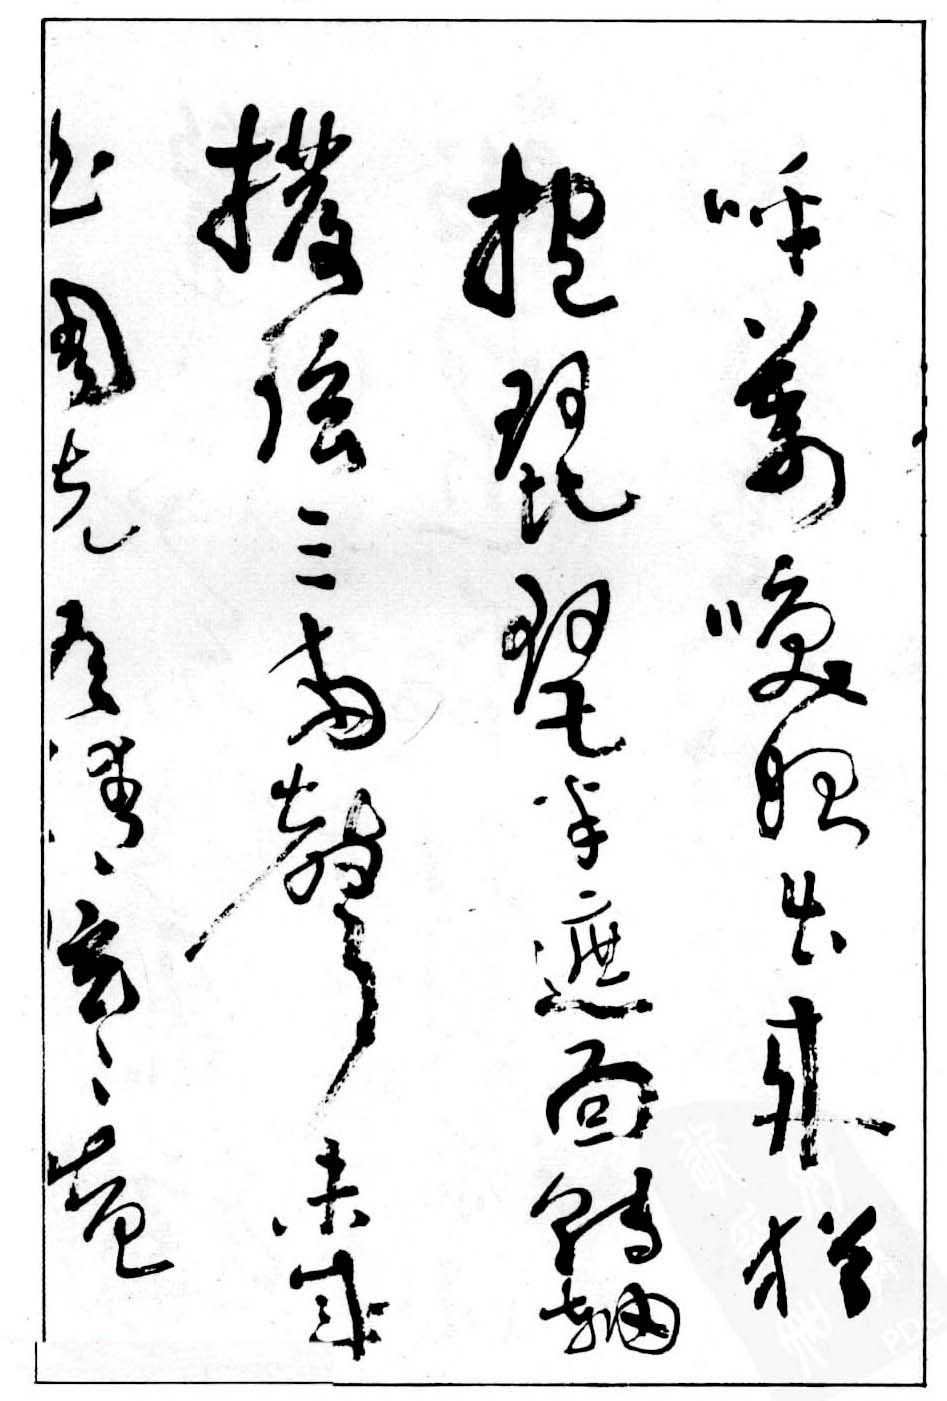 呼萬喚始出來猶
抱琵琶半遮面轉軸
撥弦三兩聲未成
先有